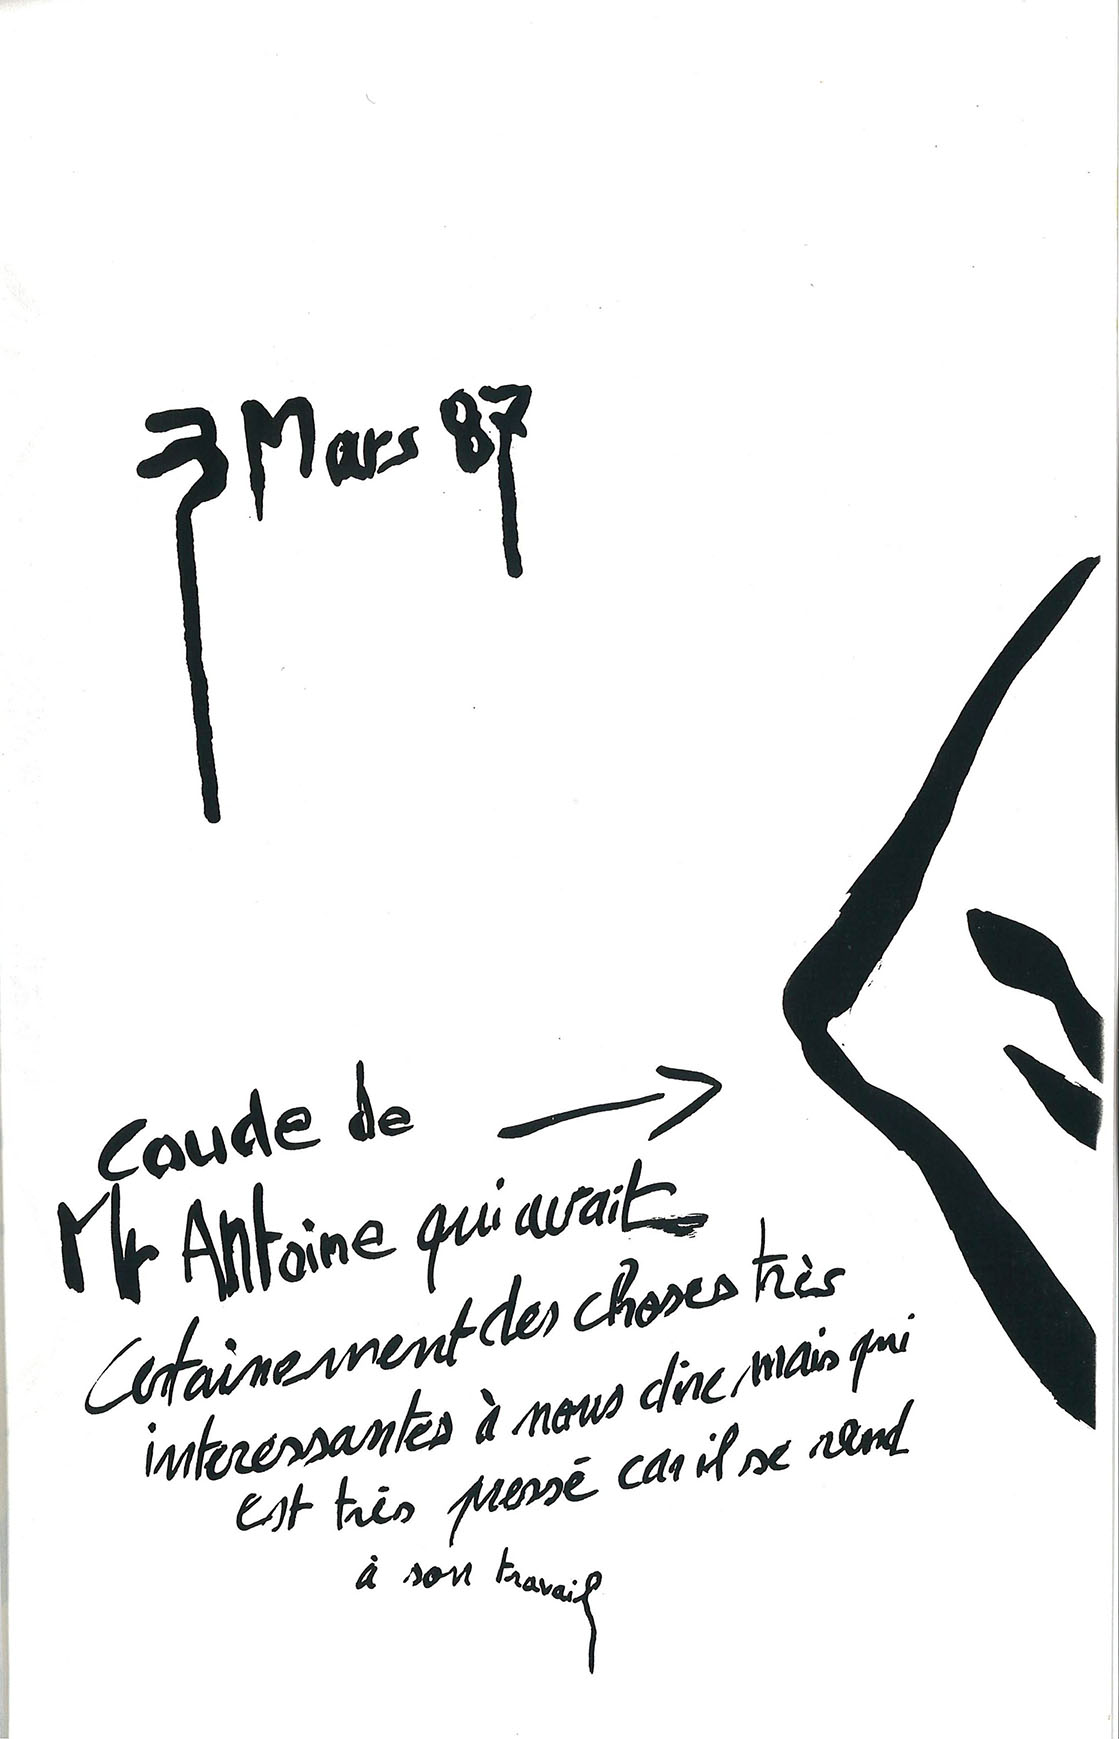 3 Mars 87
Coude de
Mr Antoine qui avait
Certainement des choses très
interessantes à nous dire mais qui
est très pressé car il se rend
à son travail